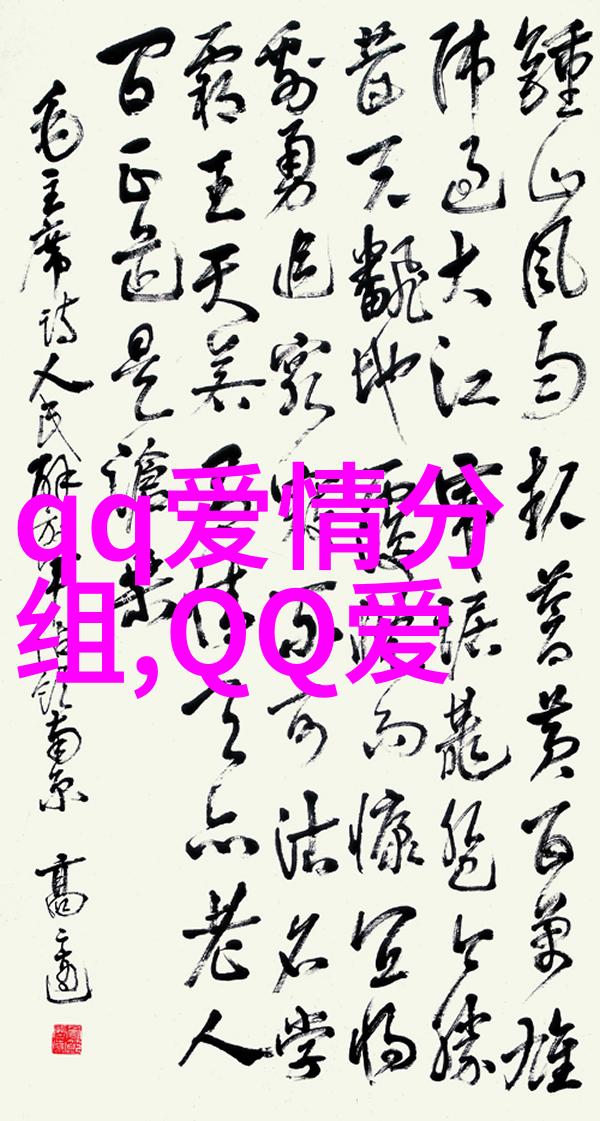 qq爱情分
组,QQ爱
鍾山风雨起蒼黄百萬雄
师過大江虎踞龍盤今勝
昔天翻地覆慨而慷宜将
剩勇追窮寇不可沽名学
霸王天若有情天亦老人
间正道是滄桑
毛主席诗人民解放军占领南京 高